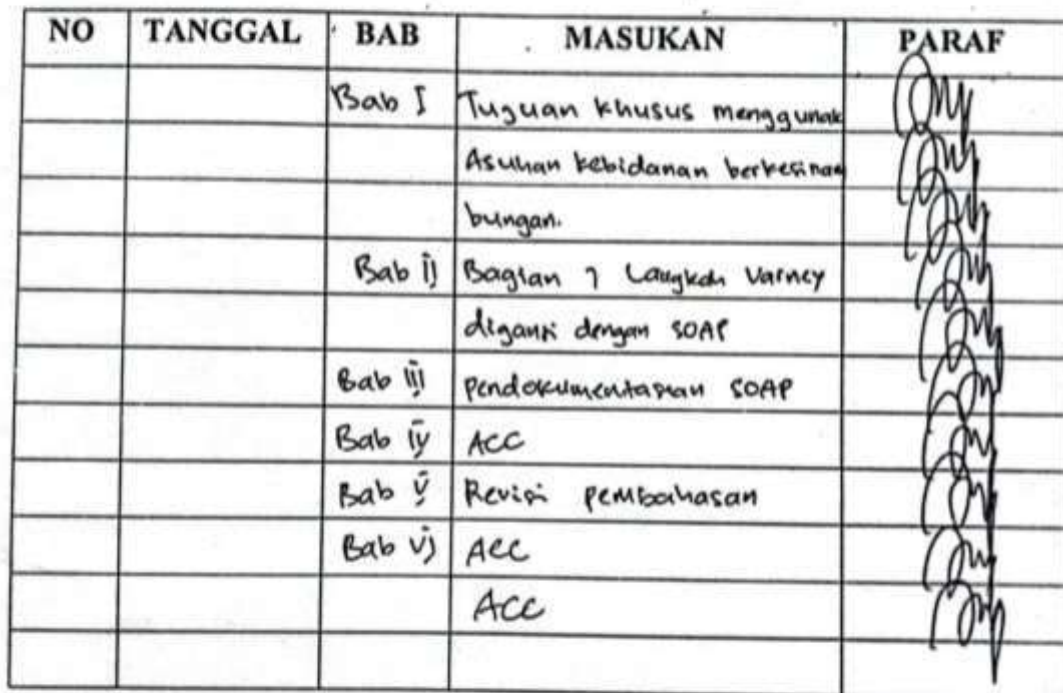 NO TANGGAL BAB MASUKAN PARAF
Bab I Tujuan khusus menggunak
Asuhan kebidanan berkesinam
bungan.
Bab II Bagian 7 Langkah Varney
diganti dengan SOAP
Bab III pendokumentasian SOAP
Bab IV ACC
Bab V Revisi pembahasan
Bab VI ACC
ACC